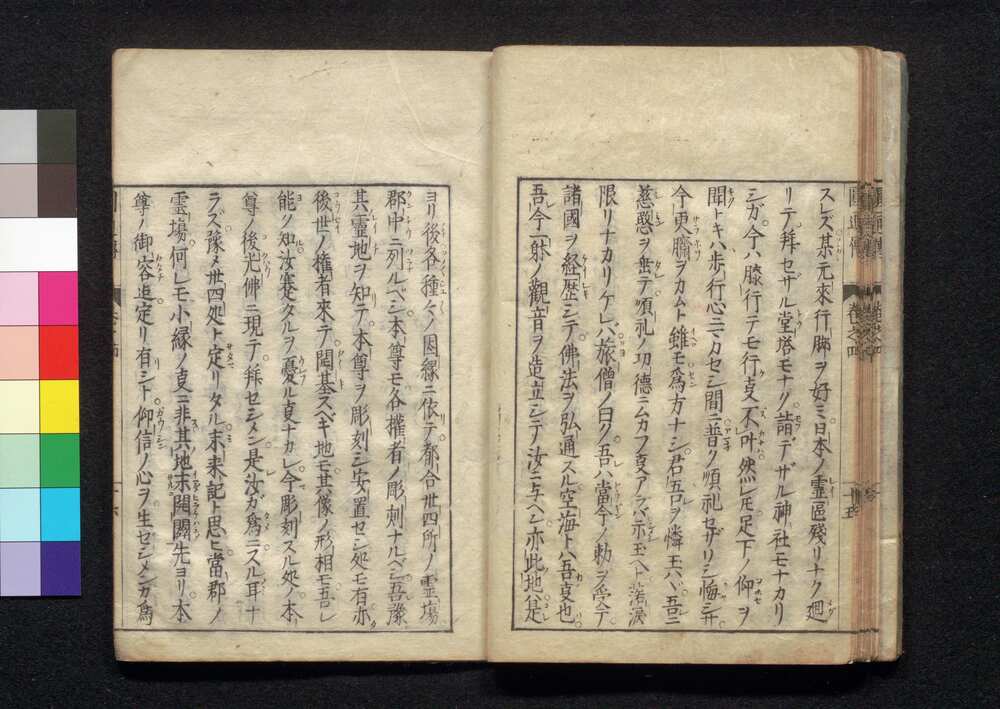 スレズ某元來行脚ヲ好ミ日本ノ靈區殘リナク廻
リテ拜セザル堂塔モナク詣デザル神社モナカリ
シガ今ハ膝行テモ行叓不叶然レ𪜈足下ノ仰ヲ
聞トキハ歩行心ニマカセシ間ニ普ク順礼セザリシ悔シ
今更臍ヲカムト雖モ爲方ナシ君吾ヲ憐玉ハヾ吾ニ
慈愍ヲ垂テ順礼ノ功德ニムカフ叓アラバ示玉ヘト落涙
限リナカリケレバ旅僧ノ曰ク吾ハ當今ノ勅ヲ受テ
諸國ヲ経歴シテ佛法ヲ弘通スル空海トハ吾叓也
吾今一躰ノ觀音ヲ造立シテ汝ニ与ヘン亦此地ハ是
ヨリ後各種々ノ因縁ニ依テ都合丗四所ノ霊塲
郡中ニ列ルベシ本尊モ各權者ノ彫刻ナルベシ吾豫
其霊地ヲ知テ本尊ヲ彫刻シ安置セシ処モ有亦
後世ノ権者來テ開基スベキ地モ其像ノ形相モ吾レ
能ク知汝蹇タルヲ憂ル叓ナカレ今彫刻スル処ノ本
尊ノ後光佛ニ現テ拜セシメン是汝ガ爲ニスル耳ナ
ラズ豫メ丗四処ト定リタル末来記ト思ヒ當郡ノ
霊塲何レモ小縁ノ叓ニ非其地未開闢先ヨリ本
尊ノ御容迠定リ有シト仰信ノ心ヲ生セシメンカ爲